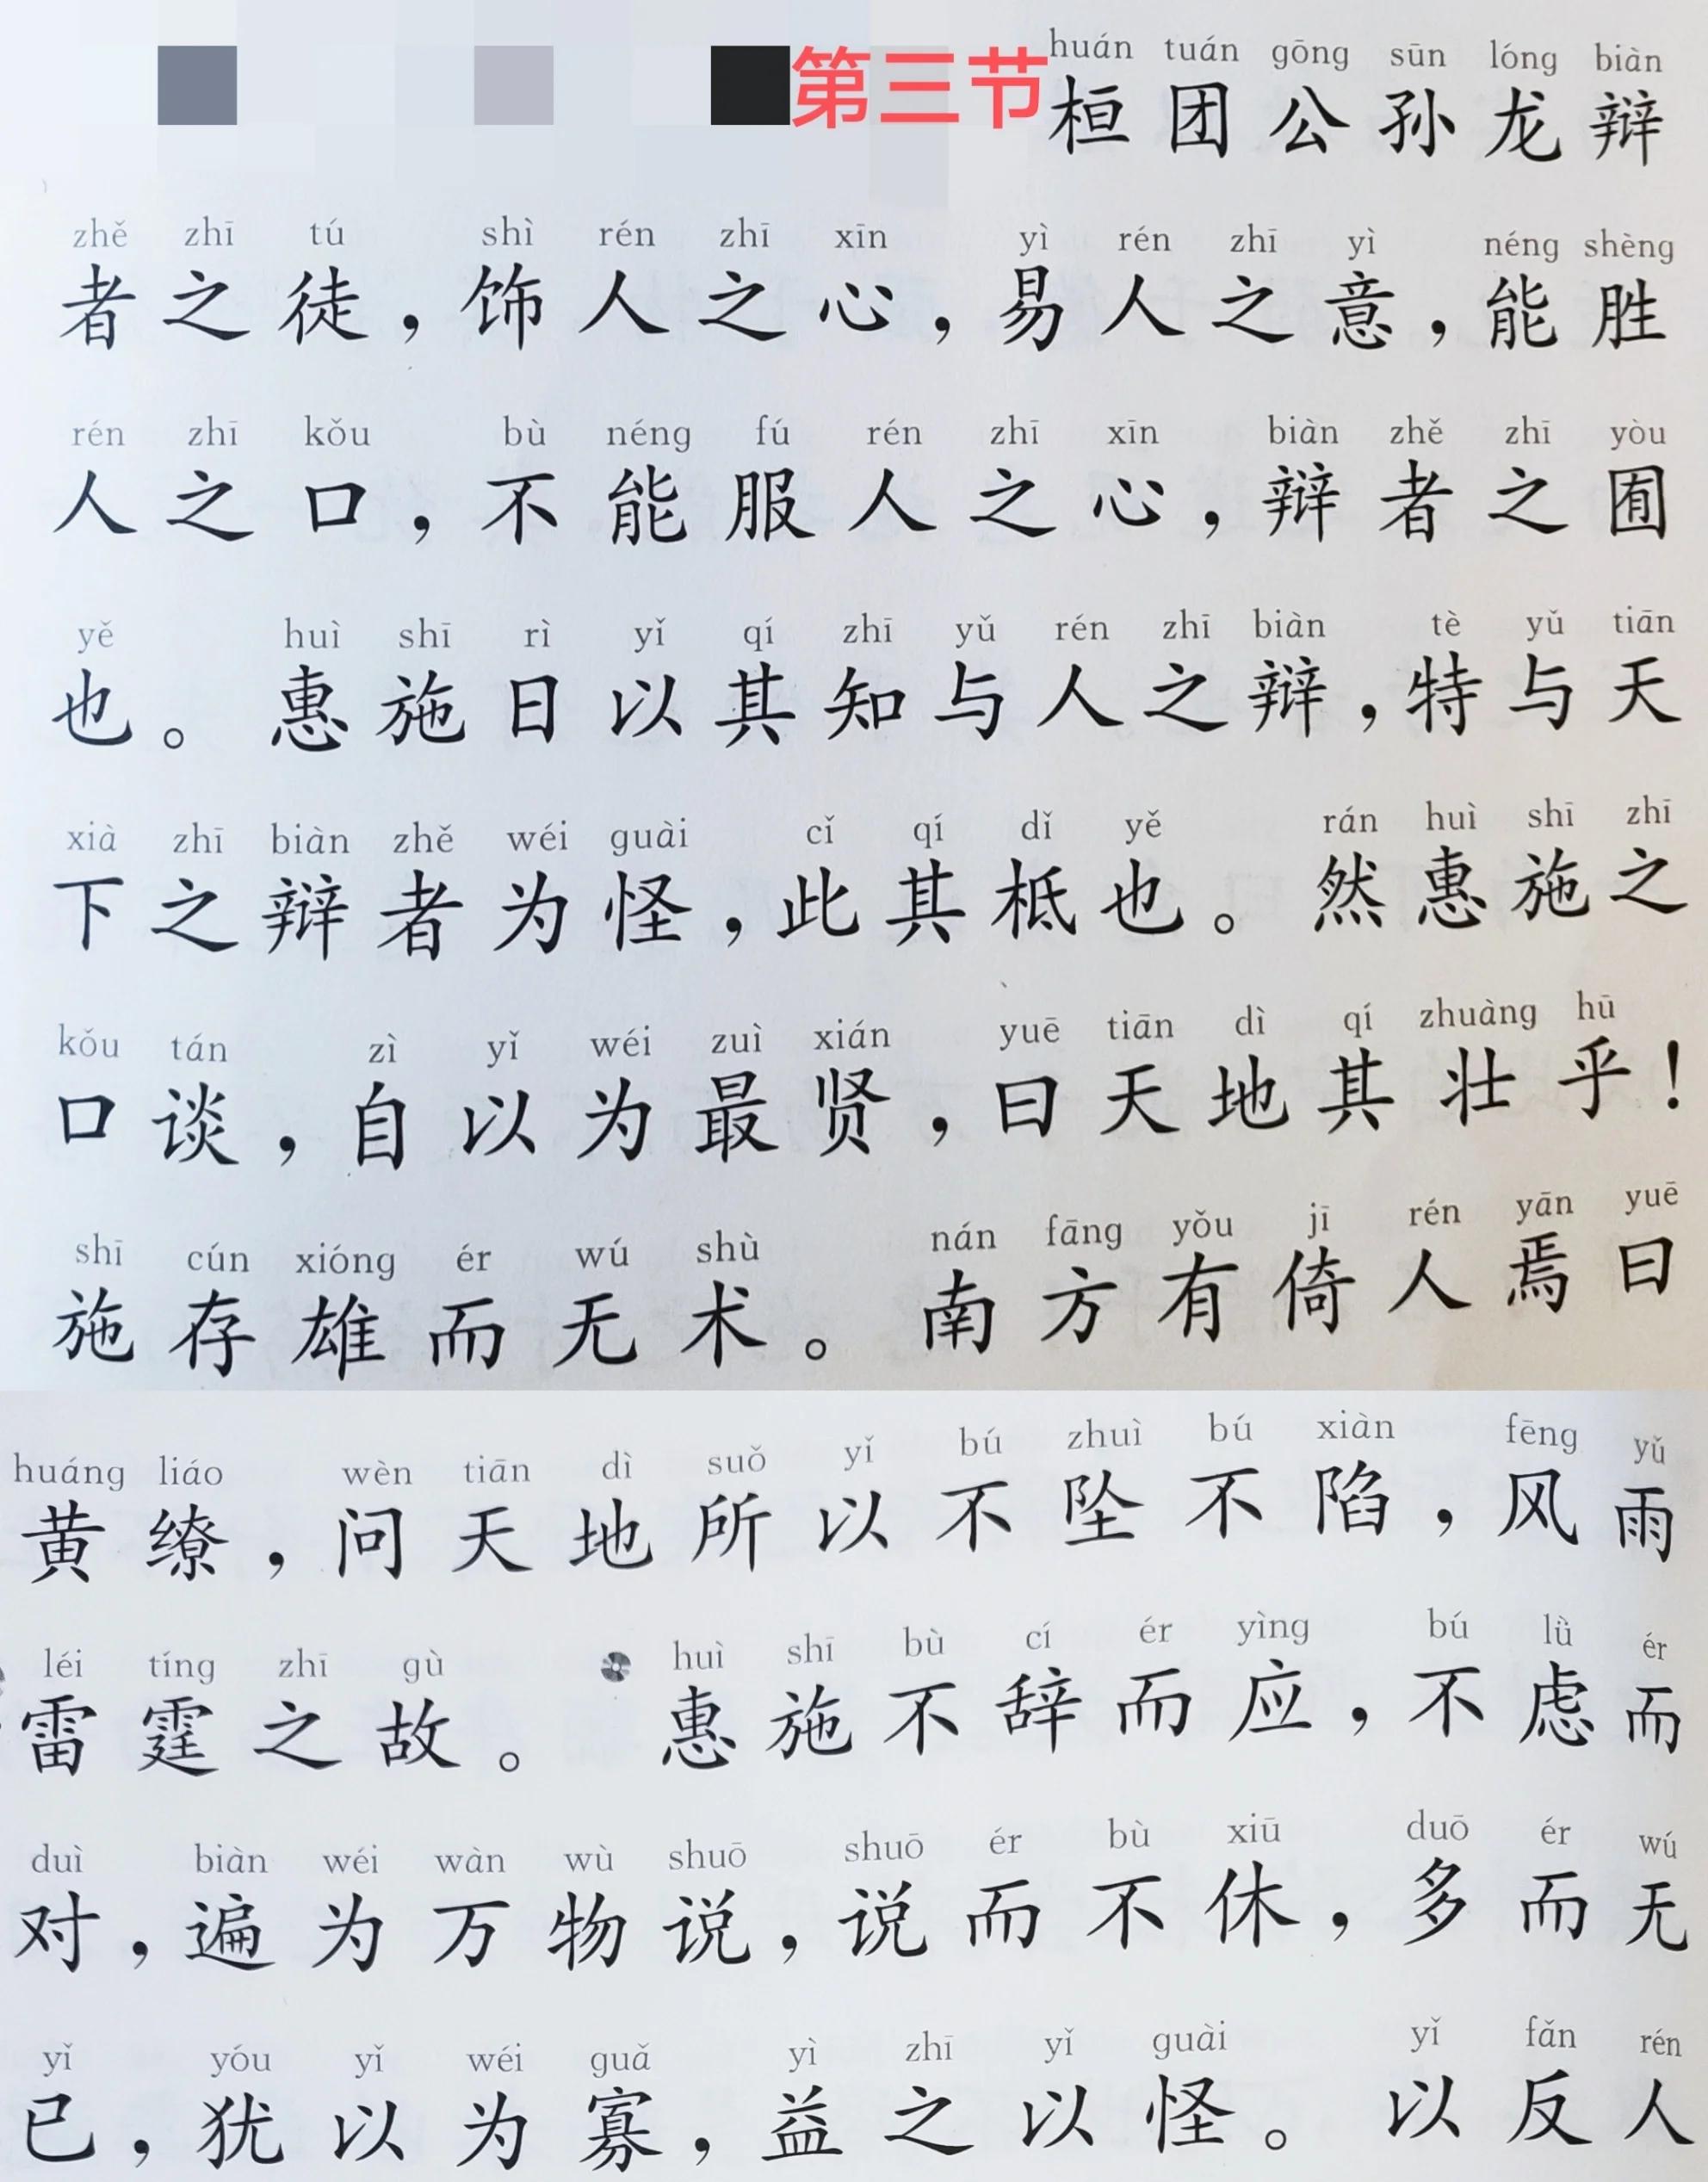 第三节
huán tuán gōng sūn lóng biàn
桓团公孙龙辩
zhě zhī tú shì rén zhī xīn yì rén zhī yì néng shèng
者之徒，饰人之心，易人之意，能胜
rén zhī kǒu bù néng fú rén zhī xīn biàn zhě zhī yòu
人之口，不能服人之心，辩者之囿
yě huì shī rì yǐ qí zhī yǔ rén zhī biàn tè yǔ tiān
也。惠施日以其知与人之辩，特与天
xià zhī biàn zhě wéi guài cǐ qí dǐ yě rán huì shī zhī
下之辩者为怪，此其柢也。然惠施之
kǒu tán zì yǐ wéi zuì xián yuē tiān dì qí zhuàng hū
口谈，自以为最贤，曰天地其壮乎！
shī cún xióng ér wú shù nán fāng yǒu jī rén yān yuē
施存雄而无术。南方有倚人焉曰
huáng liáo wèn tiān dì suǒ yǐ bú zhuì bú xiàn fēng yǔ
黄缭，问天地所以不坠不陷，风雨
léi tíng zhī gù huì shī bù cí ér yìng bú lǜ ér
雷霆之故。惠施不辞而应，不虑而
duì biàn wéi wàn wù shuō shuō ér bù xiū duō ér wú
对，遍为万物说，说而不休，多而无
yǐ yóu yǐ wéi guǎ yì zhī yǐ guài yǐ fǎn rén
已，犹以为寡，益之以怪。以反人